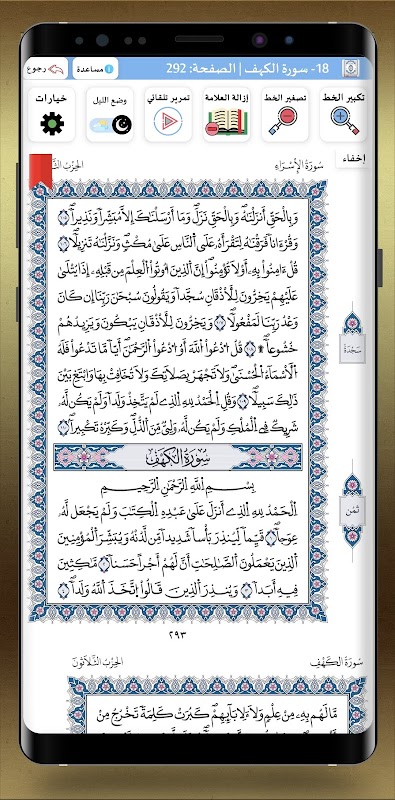 18- سورة الكهف | الصفحة: 292
مساعدة
رجوع
تكبير الخط
تصغير الخط
إزالة العلامة
تمرير تلقائي
وضع الليل
خيارات
إخفاء
سُورَةُ الإِسْرَاءِ
الحِزْبُ
وَبِالْحَقِّ أَنزَلْنَٰهُ وَبِالْحَقِّ نَزَلَ وَمَا أَرْسَلْنَٰكَ إِلَّا مُبَشِّراً وَنَذِيراً
وَقُرْءَاناً فَرَقْنَٰهُ لِتَقْرَأَهُۥ عَلَى النَّاسِ عَلَىٰ مُكْثٍ وَنَزَّلْنَٰهُ تَنزِيلاً
قُلَ اٰمِنُواْ بِهِۦٓ أَوْ لَا تُؤْمِنُوٓاْ إِنَّ الَّذِينَ أُوتُواْ الْعِلْمَ مِن قَبْلِهِۦٓ إِذَا يُتْلَىٰ
عَلَيْهِمْ يَخِرُّونَ لِلْأَذْقَانِ سُجَّداً وَيَقُولُونَ سُبْحَٰنَ رَبِّنَآ إِن كَانَ
وَعْدُ رَبِّنَا لَمَفْعُولاً وَيَخِرُّونَ لِلْأَذْقَانِ يَبْكُونَ وَيَزِيدُهُمْ
خُشُوعاً ۩ قُلُ ادْعُواْ اللَّهَ أَوُ ادْعُواْ الرَّحْمَٰنَ أَيّاً مَّا تَدْعُواْ فَلَهُ
الْأَسْمَآءُ الْحُسْنَىٰ وَلَا تَجْهَرْ بِصَلَاتِكَ وَلَا تُخَافِتْ بِهَا وَابْتَغِ بَيْنَ
ذَٰلِكَ سَبِيلاً وَقُلِ الْحَمْدُ لِلهِ الَّذِے لَمْ يَتَّخِذْ وَلَداً وَلَمْ يَكُن لَّهُۥ
شَرِيكٌ فِے الْمُلْكِ وَلَمْ يَكُن لَّهُۥ وَلِيٌّ مِّنَ الذُّلِّ وَكَبِّرْهُ تَكْبِيراً
سَجْدَة
سُورَةُ الكَهْفِ
بِسْمِ اللَّهِ الرَّحْمَٰنِ الرَّحِيمِ
الْحَمْدُ لِلهِ الَّذِےٓ أَنزَلَ عَلَىٰ عَبْدِهِ الْكِتَٰبَ وَلَمْ يَجْعَل لَّهُۥ
عِوَجاً قَيِّماً لِّيُنذِرَ بَأْساً شَدِيداً مِّن لَّدُنْهُ وَيُبَشِّرَ الْمُؤْمِنِينَ
الَّذِينَ يَعْمَلُونَ الصَّٰلِحَٰتِ أَنَّ لَهُمْ أَجْراً حَسَناً مَّٰكِثِينَ
فِيهِ أَبَداً وَيُنذِرَ الَّذِينَ قَالُواْ اتَّخَذَ اللَّهُ وَلَداً
ثُمُن
٢٩٣
سُورَةُ الكَهْفِ
الحِزْبُ الثَّلَاثُونَ
مَّا لَهُم بِهِۦ مِنْ عِلْمٍ وَلَا لِأٓبَآئِهِمْ كَبُرَتْ كَلِمَةً تَخْرُجُ مِنْ